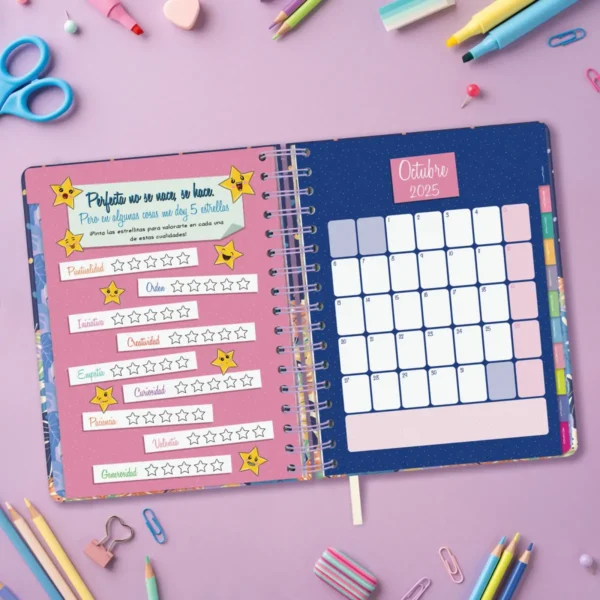 Perfecta no se nace, se hace.
Pero en algunas cosas me doy 5 estrellas
¡Pinta las estrellitas para valorarte en cada una
de estas cualidades!
Puntualidad
Orden
Iniciativa
Creatividad
Empatía
Curiosidad
Paciencia
Valentía
Generosidad
Octubre
2025
1 2 3 4
6 7 8 9 10 11
13 14 15 16 17 18
20 21 22 23 24 25
27 28 29 30 31